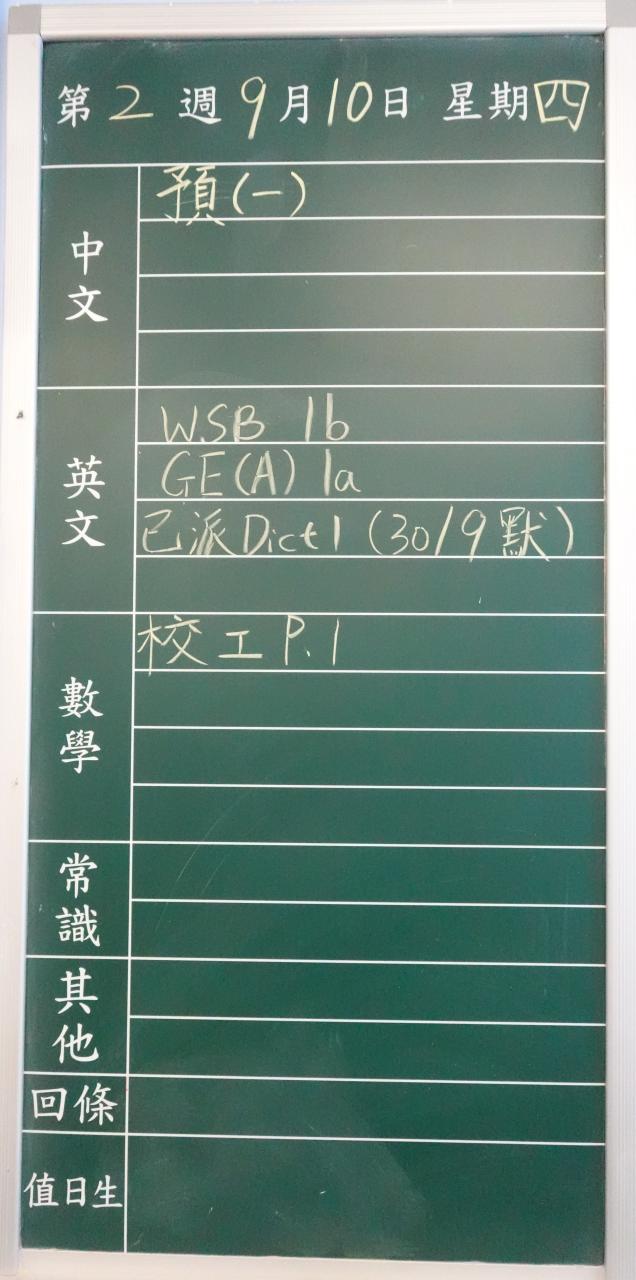 第2週9月10日 星期四
中文
預(一)
英文
W.S.B 1b
GE(A) 1a
已派Dict1 (30/9默)
數學
校工 P.1
常識
其他
回條
值日生